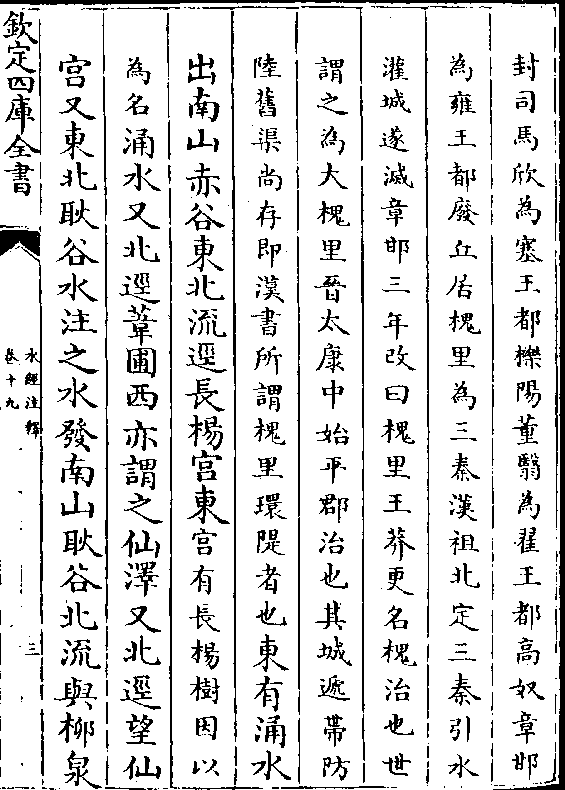 封司馬欣為塞王都櫟陽董翳為翟王都高奴章邯
為雍王都廢丘居槐里為三秦漢祖北定三秦引水
灌城遂滅章邯三年改曰槐里王莽更名槐治也世
謂之為大槐里晉太康中始平郡治也其城遞帶防
陸舊渠尚存即漢書所謂槐里環隄者也東有涌水
出南山赤谷東北流逕長楊宫東宫有長楊樹因以
為名涌水又北逕葦圃西亦謂之仙澤又北逕望仙
宫又東北耿谷水注之水發南山耿谷北流與柳泉
欽定四庫全書
水經注釋
卷十九
三